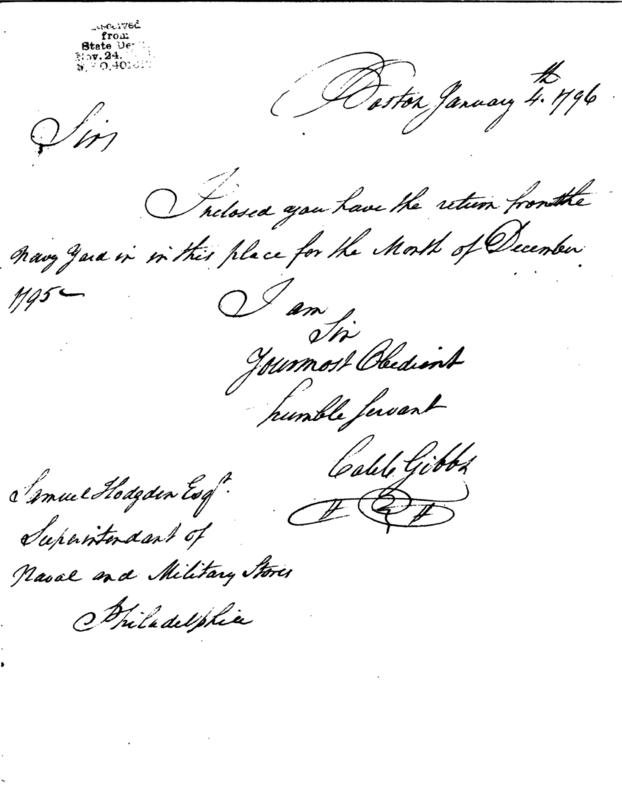 Received
from
State De
Nov. 24.
Boston January 4th. 1796
Sir
Inclosed you have the return from the
Navy Yard in in this place for the Month of December
1795
I am
Sir
Your most Obedient
humble Servant
Caleb Gibbs
Samuel Hodgden Esqr.
Superintendant of
Naval and Military Stores
Philadelphia